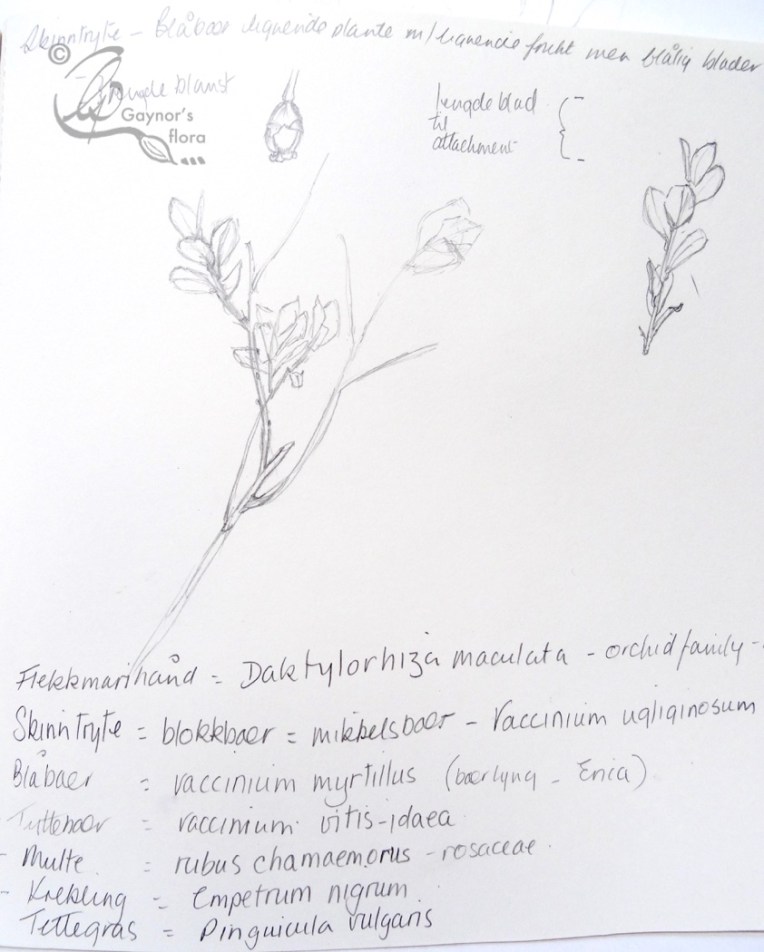 Skinntryte - Blåbaer lignende plante m/ lignende frukt men blålig blader
©
Gaynor's
flora
lengde blad
til
attachment
Flekkmarihånd = Daktylorhiza maculata - orchid family -
Skinntryte = blokkbaer = mikkelsbaer - Vaccinium ugliginosum
Blåbaer = vaccinium myrtillus (baerlyng - Erica)
Tyttebaer = vaccinium vitis-idaea
- Multe = rubus chamaemorus - rosaceae
- Krekling = Empetrum nigrum
Tettegras = Pinguicula vulgaris